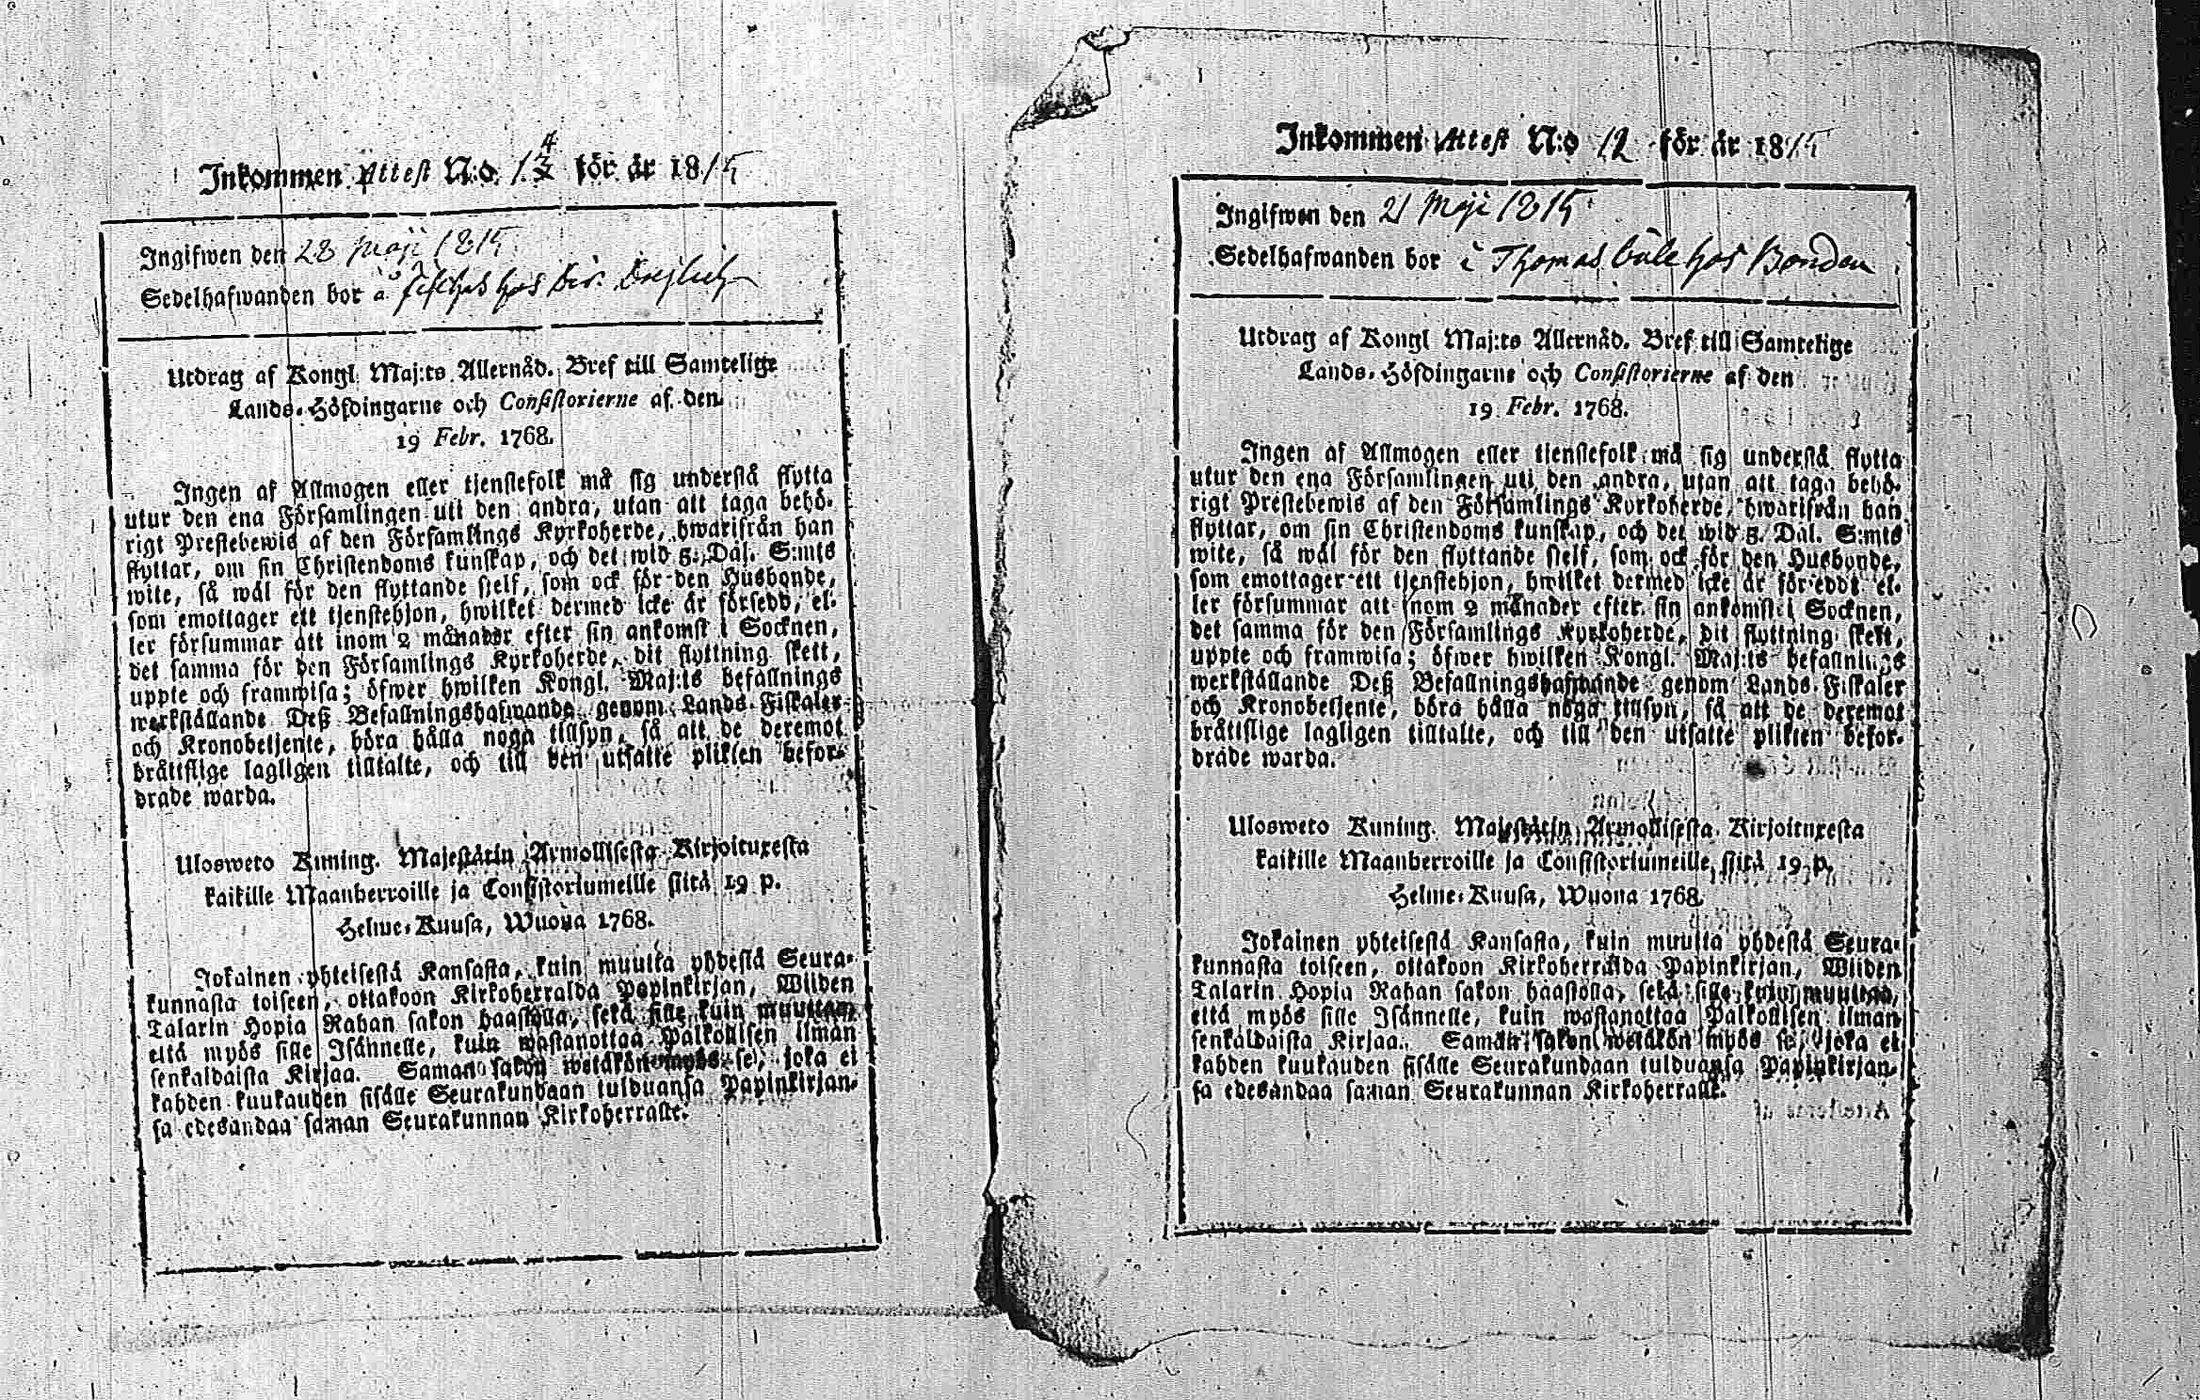 Inkommen Attest N:o 14 för år 1815
Ingifwen den 28 Maji 1815
Sedelhafwanden bor å hos
Utdrag af Kongl. Maj:ts Allernåd. Bref till Samtelige
Lands-Höfdingarne och Consistorierne af den
19 Febr. 1768.
Ingen af Allmogen eller tjenstefolk må sig understå flytta
utur den ena Församlingen uti den andra, utan att taga behö-
rigt Prestebewis af den Församlings Kyrkoherde, hwarifrån han
flyttar, om sin Christendoms kunskap, och det wid 5. Dal. S:mts
wite, så wäl för den flyttande sjelf, som ock för den Husbonde,
som emottager ett tjenstehjon, hwilket dermed icke är försedd, el-
ler försummar att inom 2 månader efter sin ankomst i Socknen,
det samma för den Församlings Kyrkoherde, dit flyttning skett,
uppte och framwisa; öfwer hwilken Kongl. Maj:ts befallnings
werkställande Deß Befallningshafwande genom Lands-Fiskaler
och Kronobetjente, böra hålla noga tillsyn, så att de deremot
bråttslige lagligen tilltalte, och till den utsatte plikten befor-
drade warda.
Ulosweto Kuning. Majestätin Armollisesta Kirjoituxesta
kaikille Maanherroille ja Consistoriumeille siitä 19 p.
Helme-Kuusa, Wuona 1768.
Jokainen yhteisestä Kansasta, kuin muutta yhdestä Seura-
kunnasta toiseen, ottakoon Kirkoherralda Papinkirjan, Wiiden
Talarin Hopia Rahan sakon haastolla, sekä sille kuin muuttaa,
että myös sille Isännelle, kuin wastanottaa Palkollisen ilman
senkaldaista Kirjaa. Saman sakon wetäkön myös se, joka ei
kahden kuukauden sisälle Seurakundaan tulduansa Papinkirjan-
sa edesandaa saman Seurakunnan Kirkoherralle.
Inkommen Attest N:o 12 för år 1815
Ingifwen den 21 Maji 1815
Sedelhafwanden bor i Thomas böle hos Bonden
Utdrag af Kongl Maj:ts Allernåd. Bref till Samtelige
Lands-Höfdingarne och Consistorierne af den
19 Febr. 1768.
Ingen af Allmogen eller tjenstefolk må sig understå flytta
utur den ena Församlingen uti den andra, utan att taga behö-
rigt Prestebewis af den Församlings Kyrkoherde, hwarifrån han
flyttar, om sin Christendoms kunskap, och det wid 5. Dal. S:mts
wite, så wäl för den flyttande sjelf, som ock för den Husbonde,
som emottager ett tjenstehjon, hwilket dermed icke är försedd, el-
ler försummar att inom 2 månader efter sin ankomst i Socknen,
det samma för den Församlings Kyrkoherde, dit flyttning skett,
uppte och framwisa; öfwer hwilken Kongl. Maj:ts befallnings
werkställande Deß Befallningshafwande genom Lands-Fiskaler
och Kronobetjente, böra hålla noga tillsyn, så att de deremot
bråttslige lagligen tilltalte, och till den utsatte plikten befor-
drade warda.
Ulosweto Kuning. Majestätin Armollisesta Kirjoituxesta
kaikille Maanherroille ja Consistoriumeille, siitä 19 p.
Helme-Kuusa, Wuona 1768.
Jokainen yhteisestä Kansasta, kuin muutta yhdestä Seura-
kunnasta toiseen, ottakoon Kirkoherralda Papinkirjan, Wiiden
Talarin Hopia Rahan sakon haastolla, sekä sille kuin muuttaa,
että myös sille Isännelle, kuin wastanottaa Palkollisen ilman
senkaldaista Kirjaa. Saman sakon wetäkön myös se, joka ei
kahden kuukauden sisälle Seurakundaan tulduansa Papinkirjan-
sa edesandaa saman Seurakunnan Kirkoherralle.